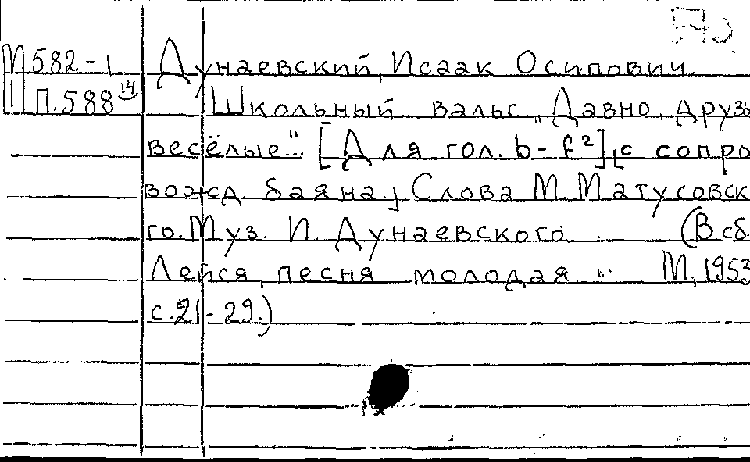 М582-1 Дунаевский, Исаак Осипович.
Ш П.588 Школьный вальс „Давно, друзь
весёлые..." [Для гол. b-f²], с сопро
вожд. баяна; Слова М. Матусовск
го. Муз. И. Дунаевского. (В сб.
Лейся, песня молодая... М., 1953
с.21-29.)